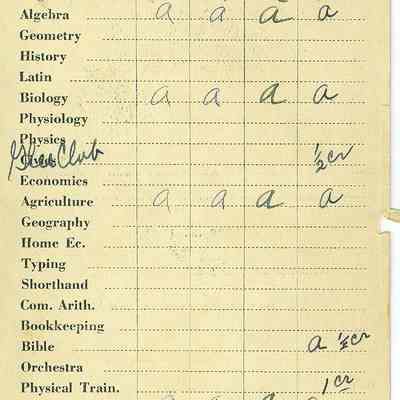 Algebra a a a a
Geometry
History
Latin
Biology a a a a
Physiology
Physics
Glee Club ½ cr
Economics
Agriculture a a a a
Geography
Home Ec.
Typing
Shorthand
Com. Arith.
Bookkeeping
Bible a ½ cr
Orchestra
Physical Train. 1 cr